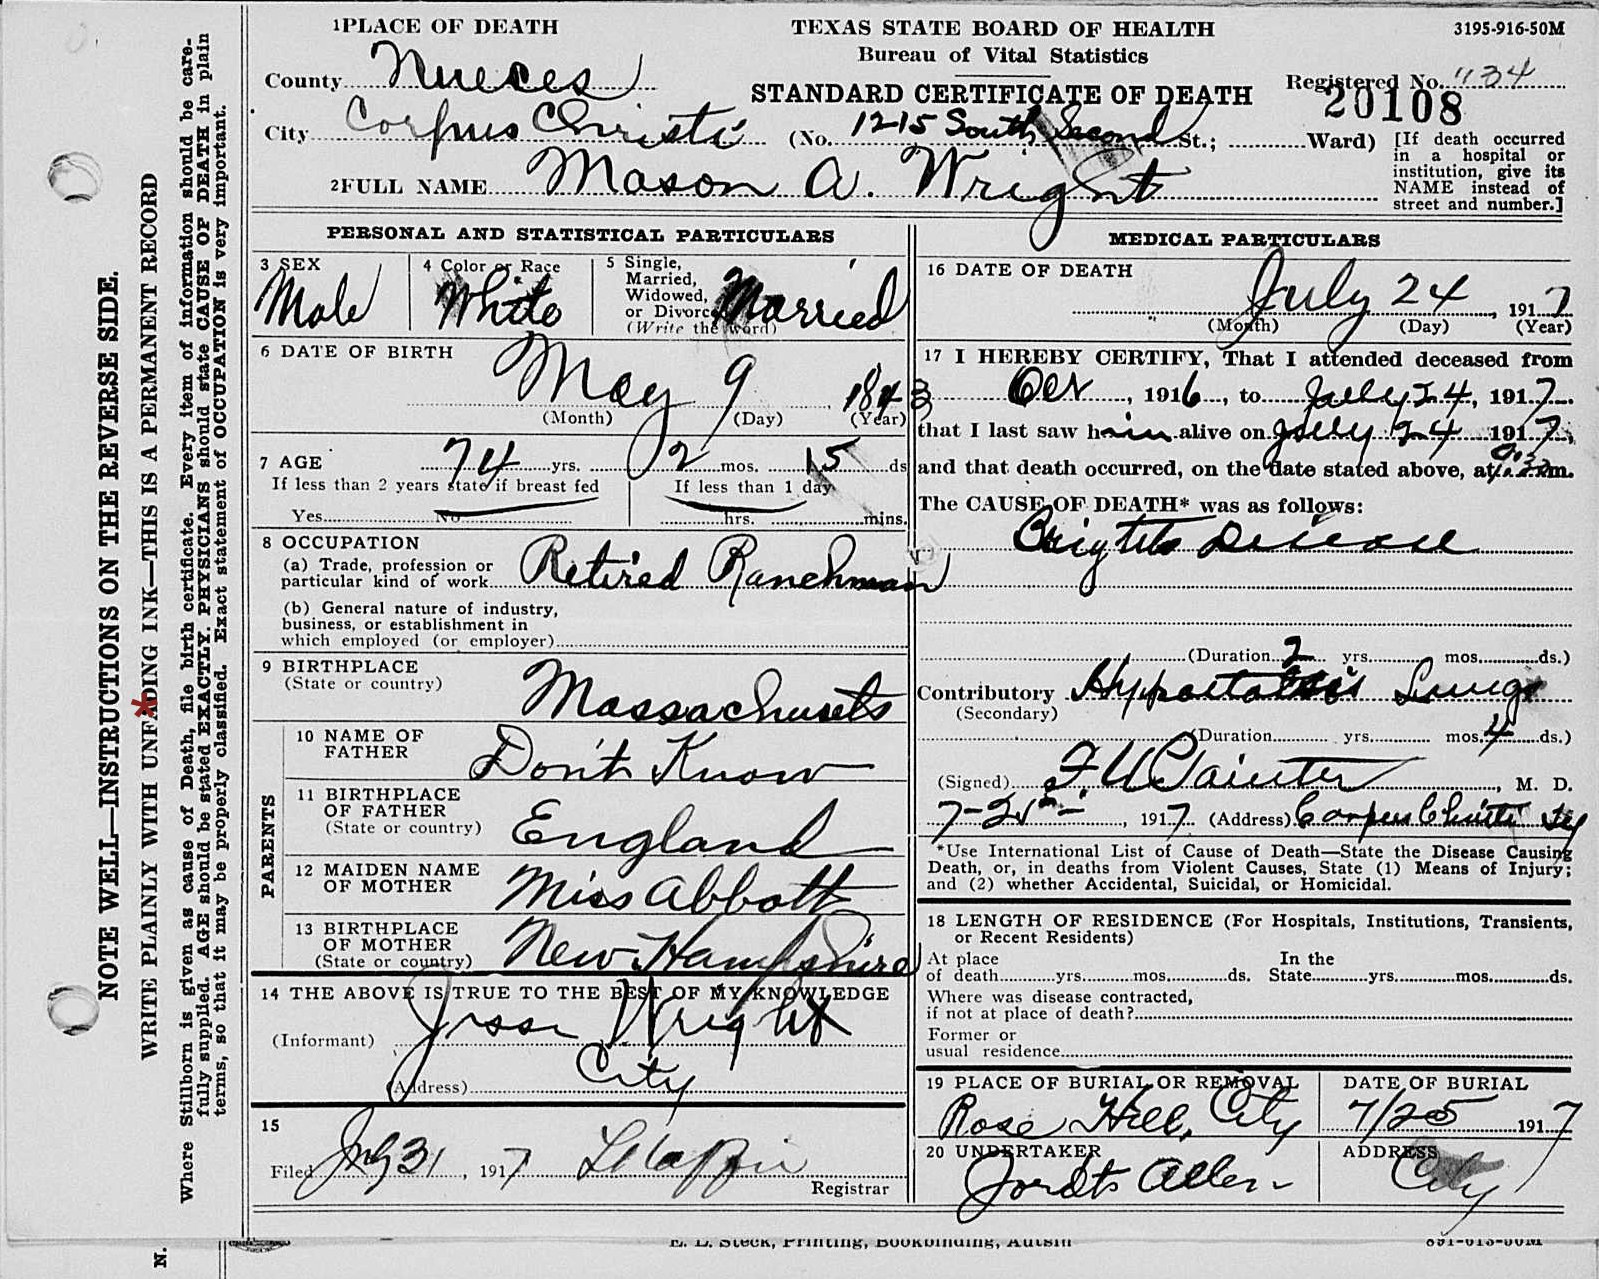 1 PLACE OF DEATH
TEXAS STATE BOARD OF HEALTH
3195-916-50M
Bureau of Vital Statistics
County Nueces
Registered No. "34
STANDARD CERTIFICATE OF DEATH
20108
City Corpus Christi (No. 1215 South Second St.; Ward)
[If death occurred
in a hospital or
institution, give its
NAME instead of
street and number.]
2 FULL NAME Mason A. Wright
PERSONAL AND STATISTICAL PARTICULARS
3 SEX
Male
4 Color or Race
White
5 Single,
Married,
Widowed,
or Divorced
(Write the word)
Married
6 DATE OF BIRTH
May 9 1843
(Month) (Day) (Year)
7 AGE
74 yrs. 2 mos. 15 ds
If less than 2 years state if breast fed
If less than 1 day
Yes No
hrs. mins.
8 OCCUPATION
(a) Trade, profession or
particular kind of work Retired Ranchman
(b) General nature of industry,
business, or establishment in
which employed (or employer)
9 BIRTHPLACE
(State or country)
Massachusets
PARENTS
10 NAME OF
FATHER
Don't Know
11 BIRTHPLACE
OF FATHER
(State or country)
England
12 MAIDEN NAME
OF MOTHER
Miss Abbott
13 BIRTHPLACE
OF MOTHER
(State or country)
New Hampshire
14 THE ABOVE IS TRUE TO THE BEST OF MY KNOWLEDGE
(Informant) Wright
(Address) City
15
Filed July 31, 1917
Registrar
MEDICAL PARTICULARS
16 DATE OF DEATH
July 24, 1917
(Month) (Day) (Year)
17 I HEREBY CERTIFY, That I attended deceased from
Oct, 1916, to July 24, 1917
that I last saw him alive on July 24 1917,
and that death occurred, on the date stated above, at m.
The CAUSE OF DEATH* was as follows:
Brights Disease
(Duration 2 yrs. mos. ds.)
Contributory Lungs
(Secondary)
(Duration yrs. mos. 4 ds.)
(Signed) Painter, M. D.
7-25, 1917 (Address) Corpus Christi Tex
*Use International List of Cause of Death—State the Disease Causing
Death, or, in deaths from Violent Causes, State (1) Means of Injury;
and (2) whether Accidental, Suicidal, or Homicidal.
18 LENGTH OF RESIDENCE (For Hospitals, Institutions, Transients,
or Recent Residents)
At place
of death yrs. mos. ds.
In the
State yrs. mos. ds.
Where was disease contracted,
if not at place of death?
Former or
usual residence
19 PLACE OF BURIAL OR REMOVAL
Rose Hill, City
DATE OF BURIAL
7/25 1917
20 UNDERTAKER
Allen
ADDRESS
City
E. L. Steck, Printing, Bookbinding, Autsin
891-613-50M
NOTE WELL—INSTRUCTIONS ON THE REVERSE SIDE.
WRITE PLAINLY WITH UNFADING INK—THIS IS A PERMANENT RECORD
Where Stillborn is given as cause of Death, file birth certificate. Every item of information should be care-
fully supplied. AGE should be stated EXACTLY. PHYSICIANS should state CAUSE OF DEATH in plain
terms, so that it may be properly classified. Exact statement of OCCUPATION is very important.
N.